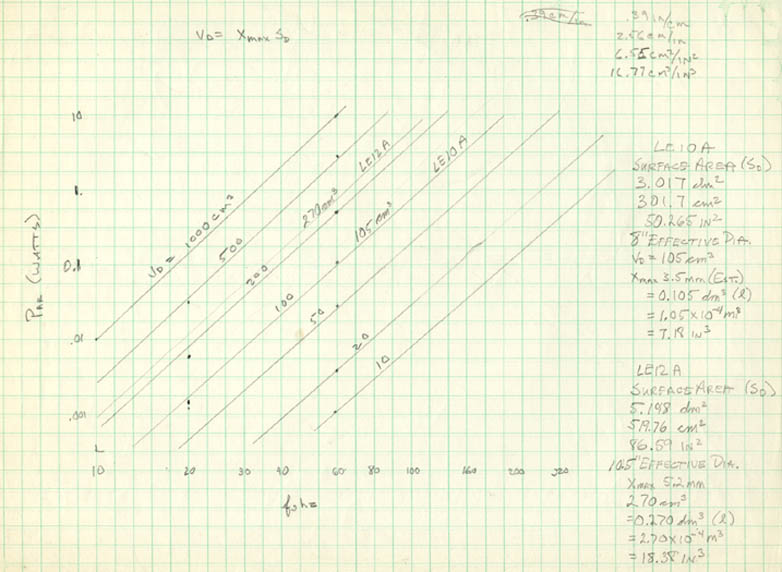 .39 cm/in
.39 in/cm
2.56 cm/in
6.55 cm²/in²
16.77 cm³/in³
VD = Xmax SD
10
1.
0.1
.01
.001
PAR (WATTS)
VD = 1000 cm³
500
270 cm³
LE12A
200
105 cm³
LE10A
100
50
20
10
10
20
30
40
60
80
100
160
200
320
LE10A
SURFACE AREA (SD)
3.017 dm²
301.7 cm²
50.265 IN²
8" EFFECTIVE DIA.
VD = 105 cm³
Xmax 3.5mm (EST.)
= 0.105 dm³ (l)
= 1.05 x 10⁻⁴ m³
= 7.18 IN³
LE12A
SURFACE AREA (SD)
5.198 dm²
519.76 cm²
86.59 IN²
10.5" EFFECTIVE DIA.
Xmax 5.2mm
270 cm³
= 0.270 dm³ (l)
= 2.70 x 10⁻⁴ m³
= 18.38 IN³